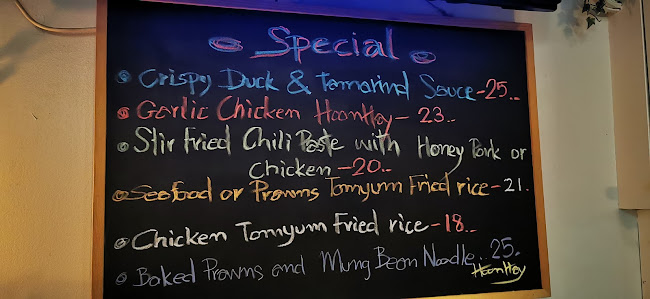 Special
Crispy Duck & Tamarind Sauce - 25..
Garlic Chicken HoonHay - 23..
Stir Fried Chili Paste with Honey Pork or
Chicken - 20..
Seafood or Prawns Tomyum Fried rice - 21.
Chicken Tomyum Fried rice - 18..
Baked Prawns and Mung Bean Noodle.. 25.
HoonHay